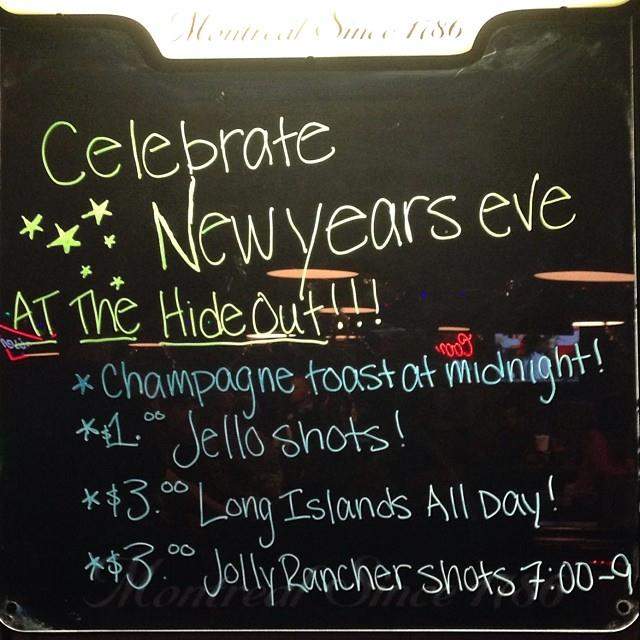 Montreal Since 1786
Celebrate
New years eve
AT The HideOut!!!
* Champagne toast at midnight!
* $1.00 Jello shots!
* $3.00 Long Islands All Day!
* $3.00 Jolly Rancher shots 7:00-9
Montreal Since 1786